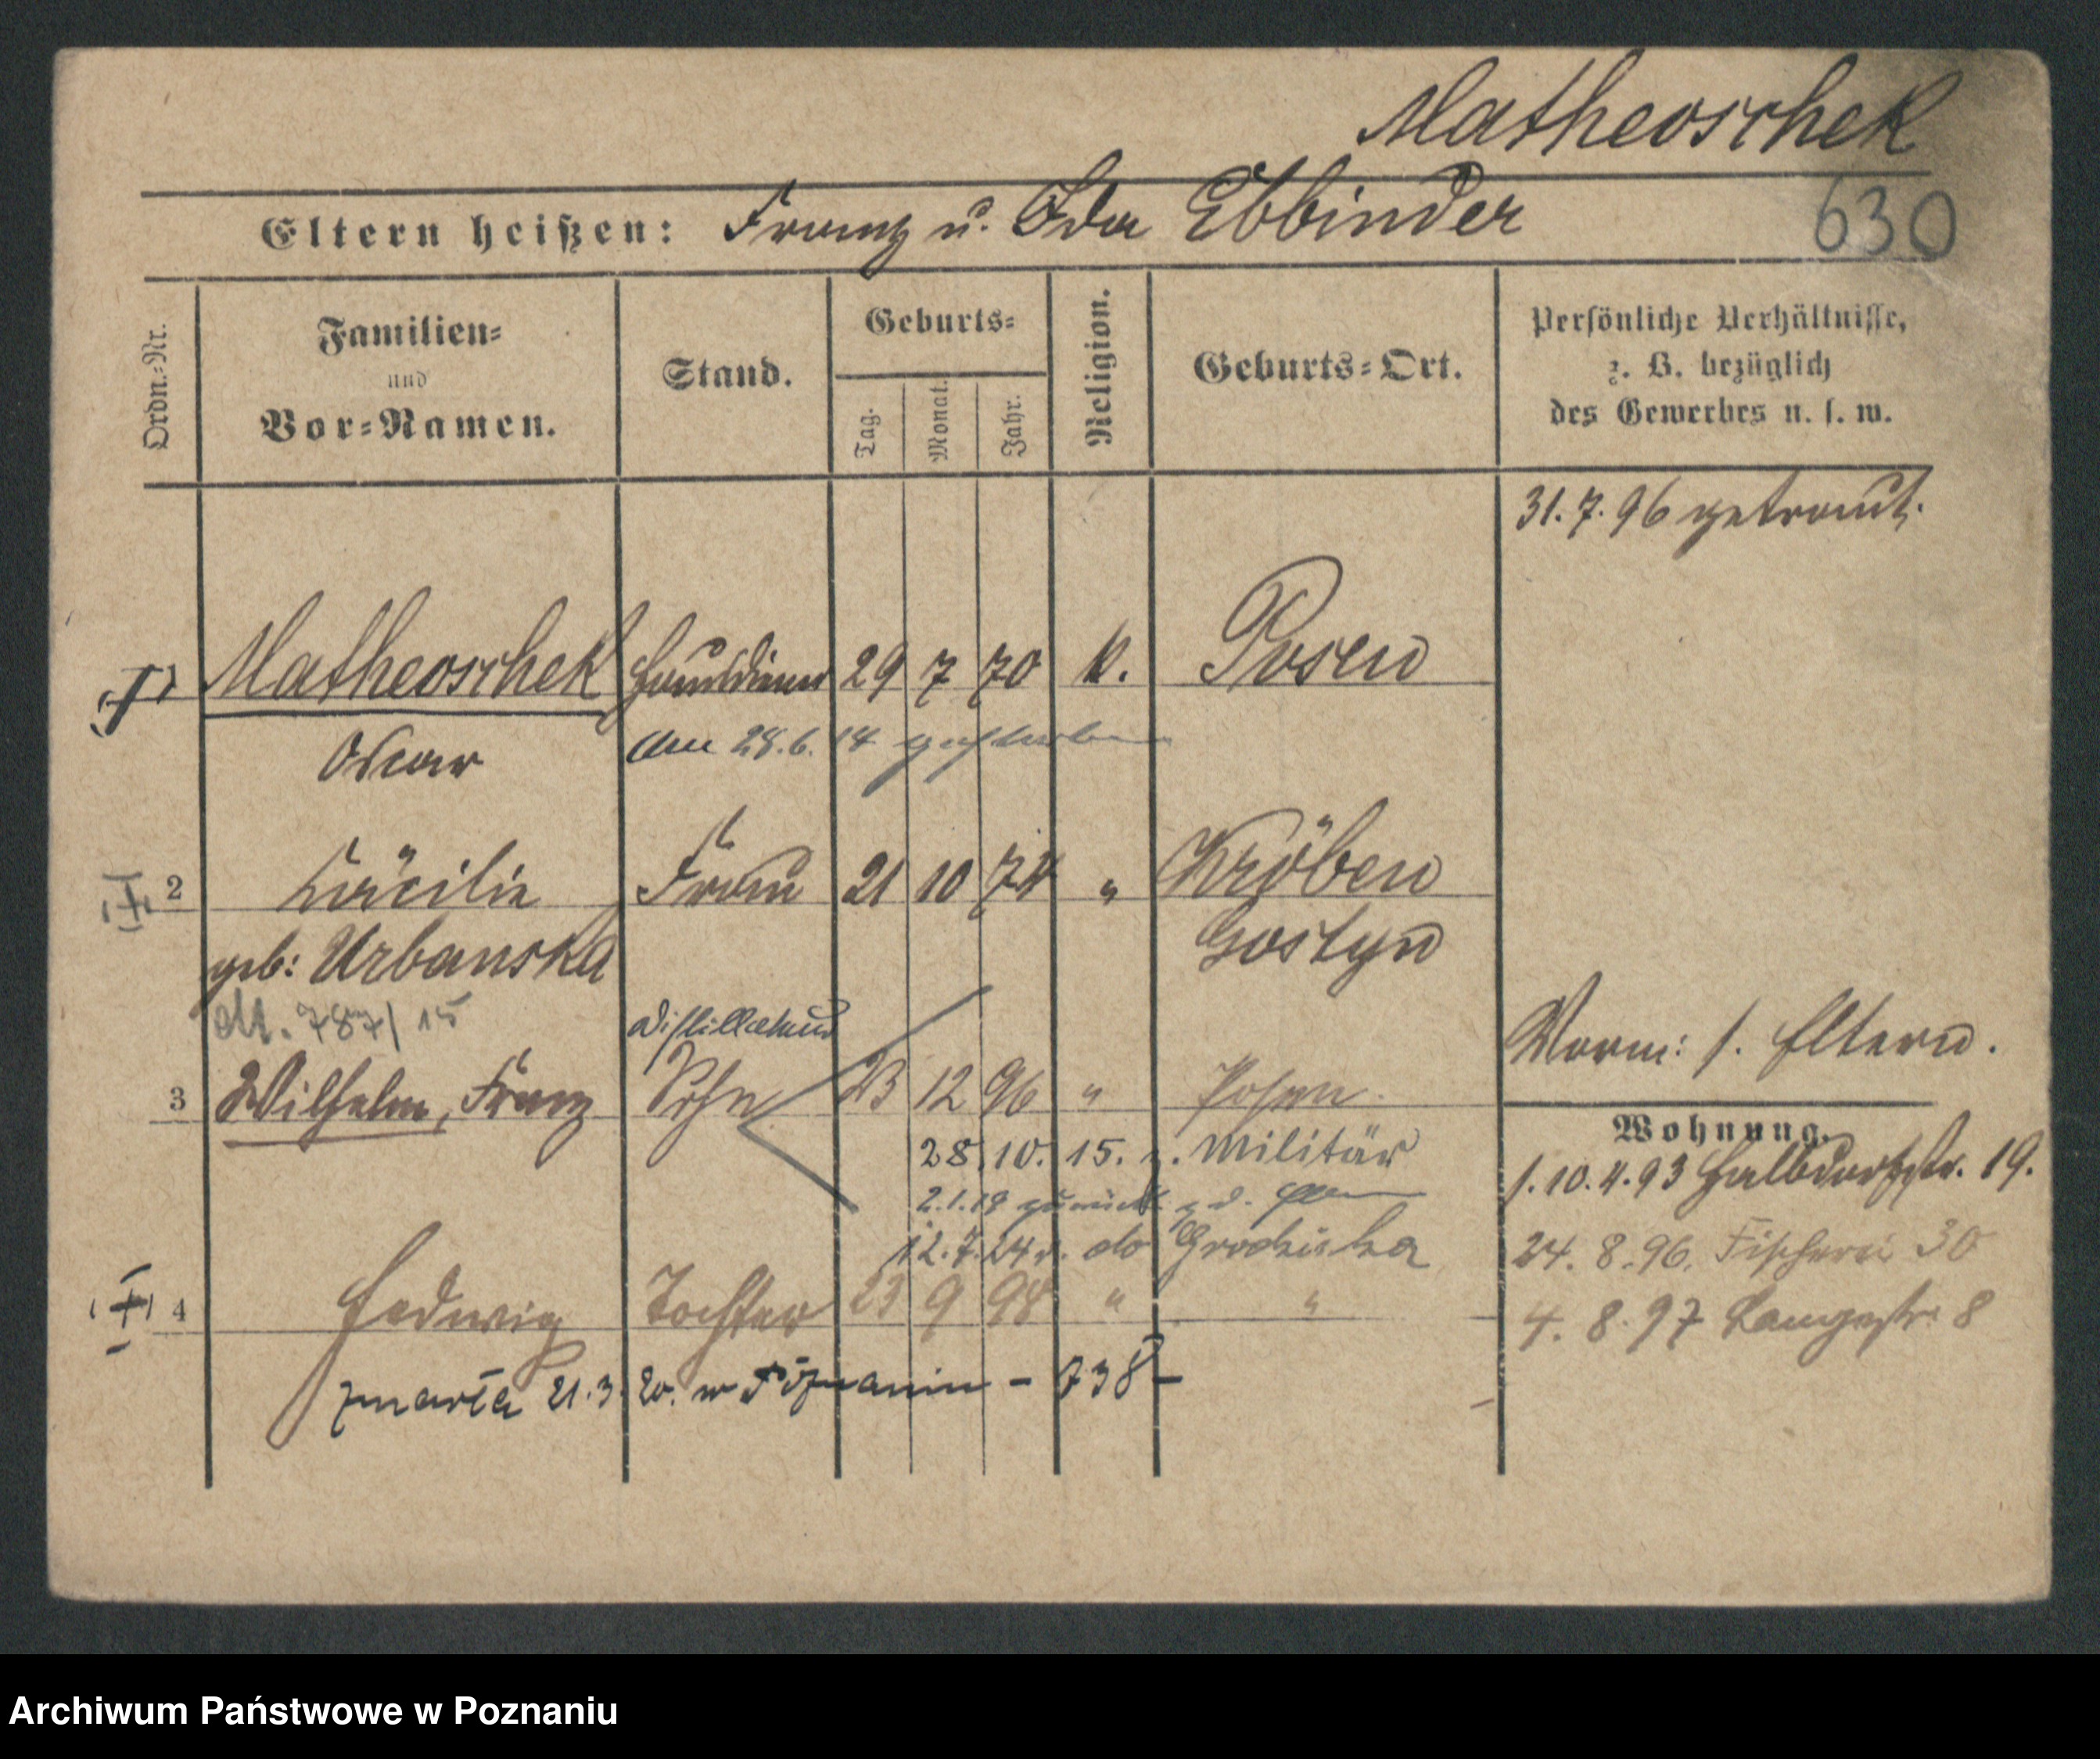 Matheoschek
Eltern heißen: Franz u. Ida Ebbinder
630
Ordn.-Nr.
Familien-
und
Vor-Namen.
Stand.
Geburts-
Tag.
Monat.
Jahr.
Religion.
Geburts-Ort.
Persönliche Verhältnisse,
z. B. bezüglich
des Gewerbes u. s. w.
31.7.96 getraut.
Matheoschek Hausdiener 29 7 70 k. Posen
Oscar
am 28.6.14 gestorben
2 Cäcilie Frau 21 10 74 " Kröben
geb: Urbanska Gostyn
787/15
Distillateur
3 Wilhelm, Franz Sohn 23 12 96 " Posen.
Vorm: s. Eltern.
28.10.15. z. Militär
2.1.19 zurück z. d.
12.7.24 do Grodziska
4 Hedwig Tochter 23 9 98 " "
zmarła 21.3.20. w Poznaniu - 738 -
Wohnung.
1.10.4.93 Halbdorfstr. 19.
24. 8. 96. Fischerei 30
4. 8. 97 Langestr. 8
Archiwum Państwowe w Poznaniu